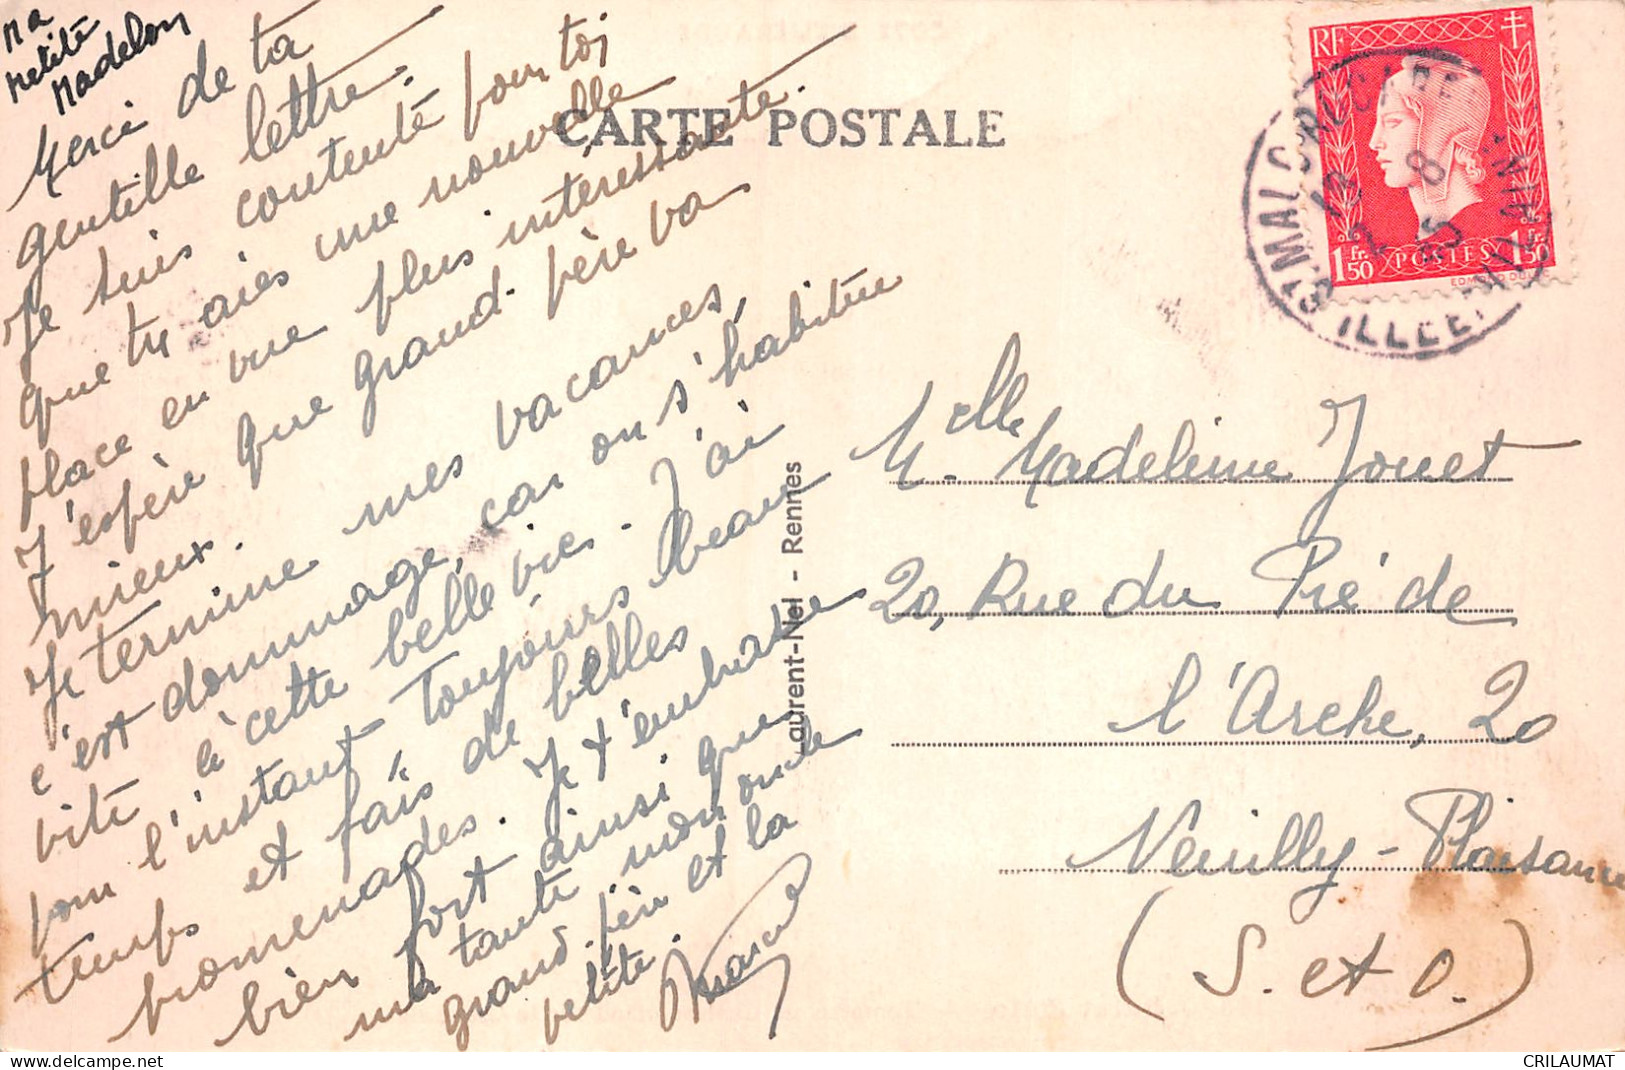 Ma
petite
Madelon
Merci de ta
gentille lettre.
Je suis contente pour toi
que tu aies une nouvelle
place en vue plus intéressante.
J'espère que grand-père va
mieux.
Je termine mes vacances,
c'est dommage, car on s'habitue
vite à cette belle vie. J'ai
pour l'instant toujours beau
temps et fais de belles
promenades. Je t'embrasse
bien fort ainsi que
ma tante, mon oncle
grand-père et la
petite.
CARTE POSTALE
Laurent-Nel - Rennes
RF
1fr.50 POSTES 1fr.50
ST MALO
ILLE ET VILAINE
M.elle Madeleine Jouet
20, Rue du Pré de
l'Arche, 20
Neuilly-Plaisance
(S. et O.)
CRILAUMAT